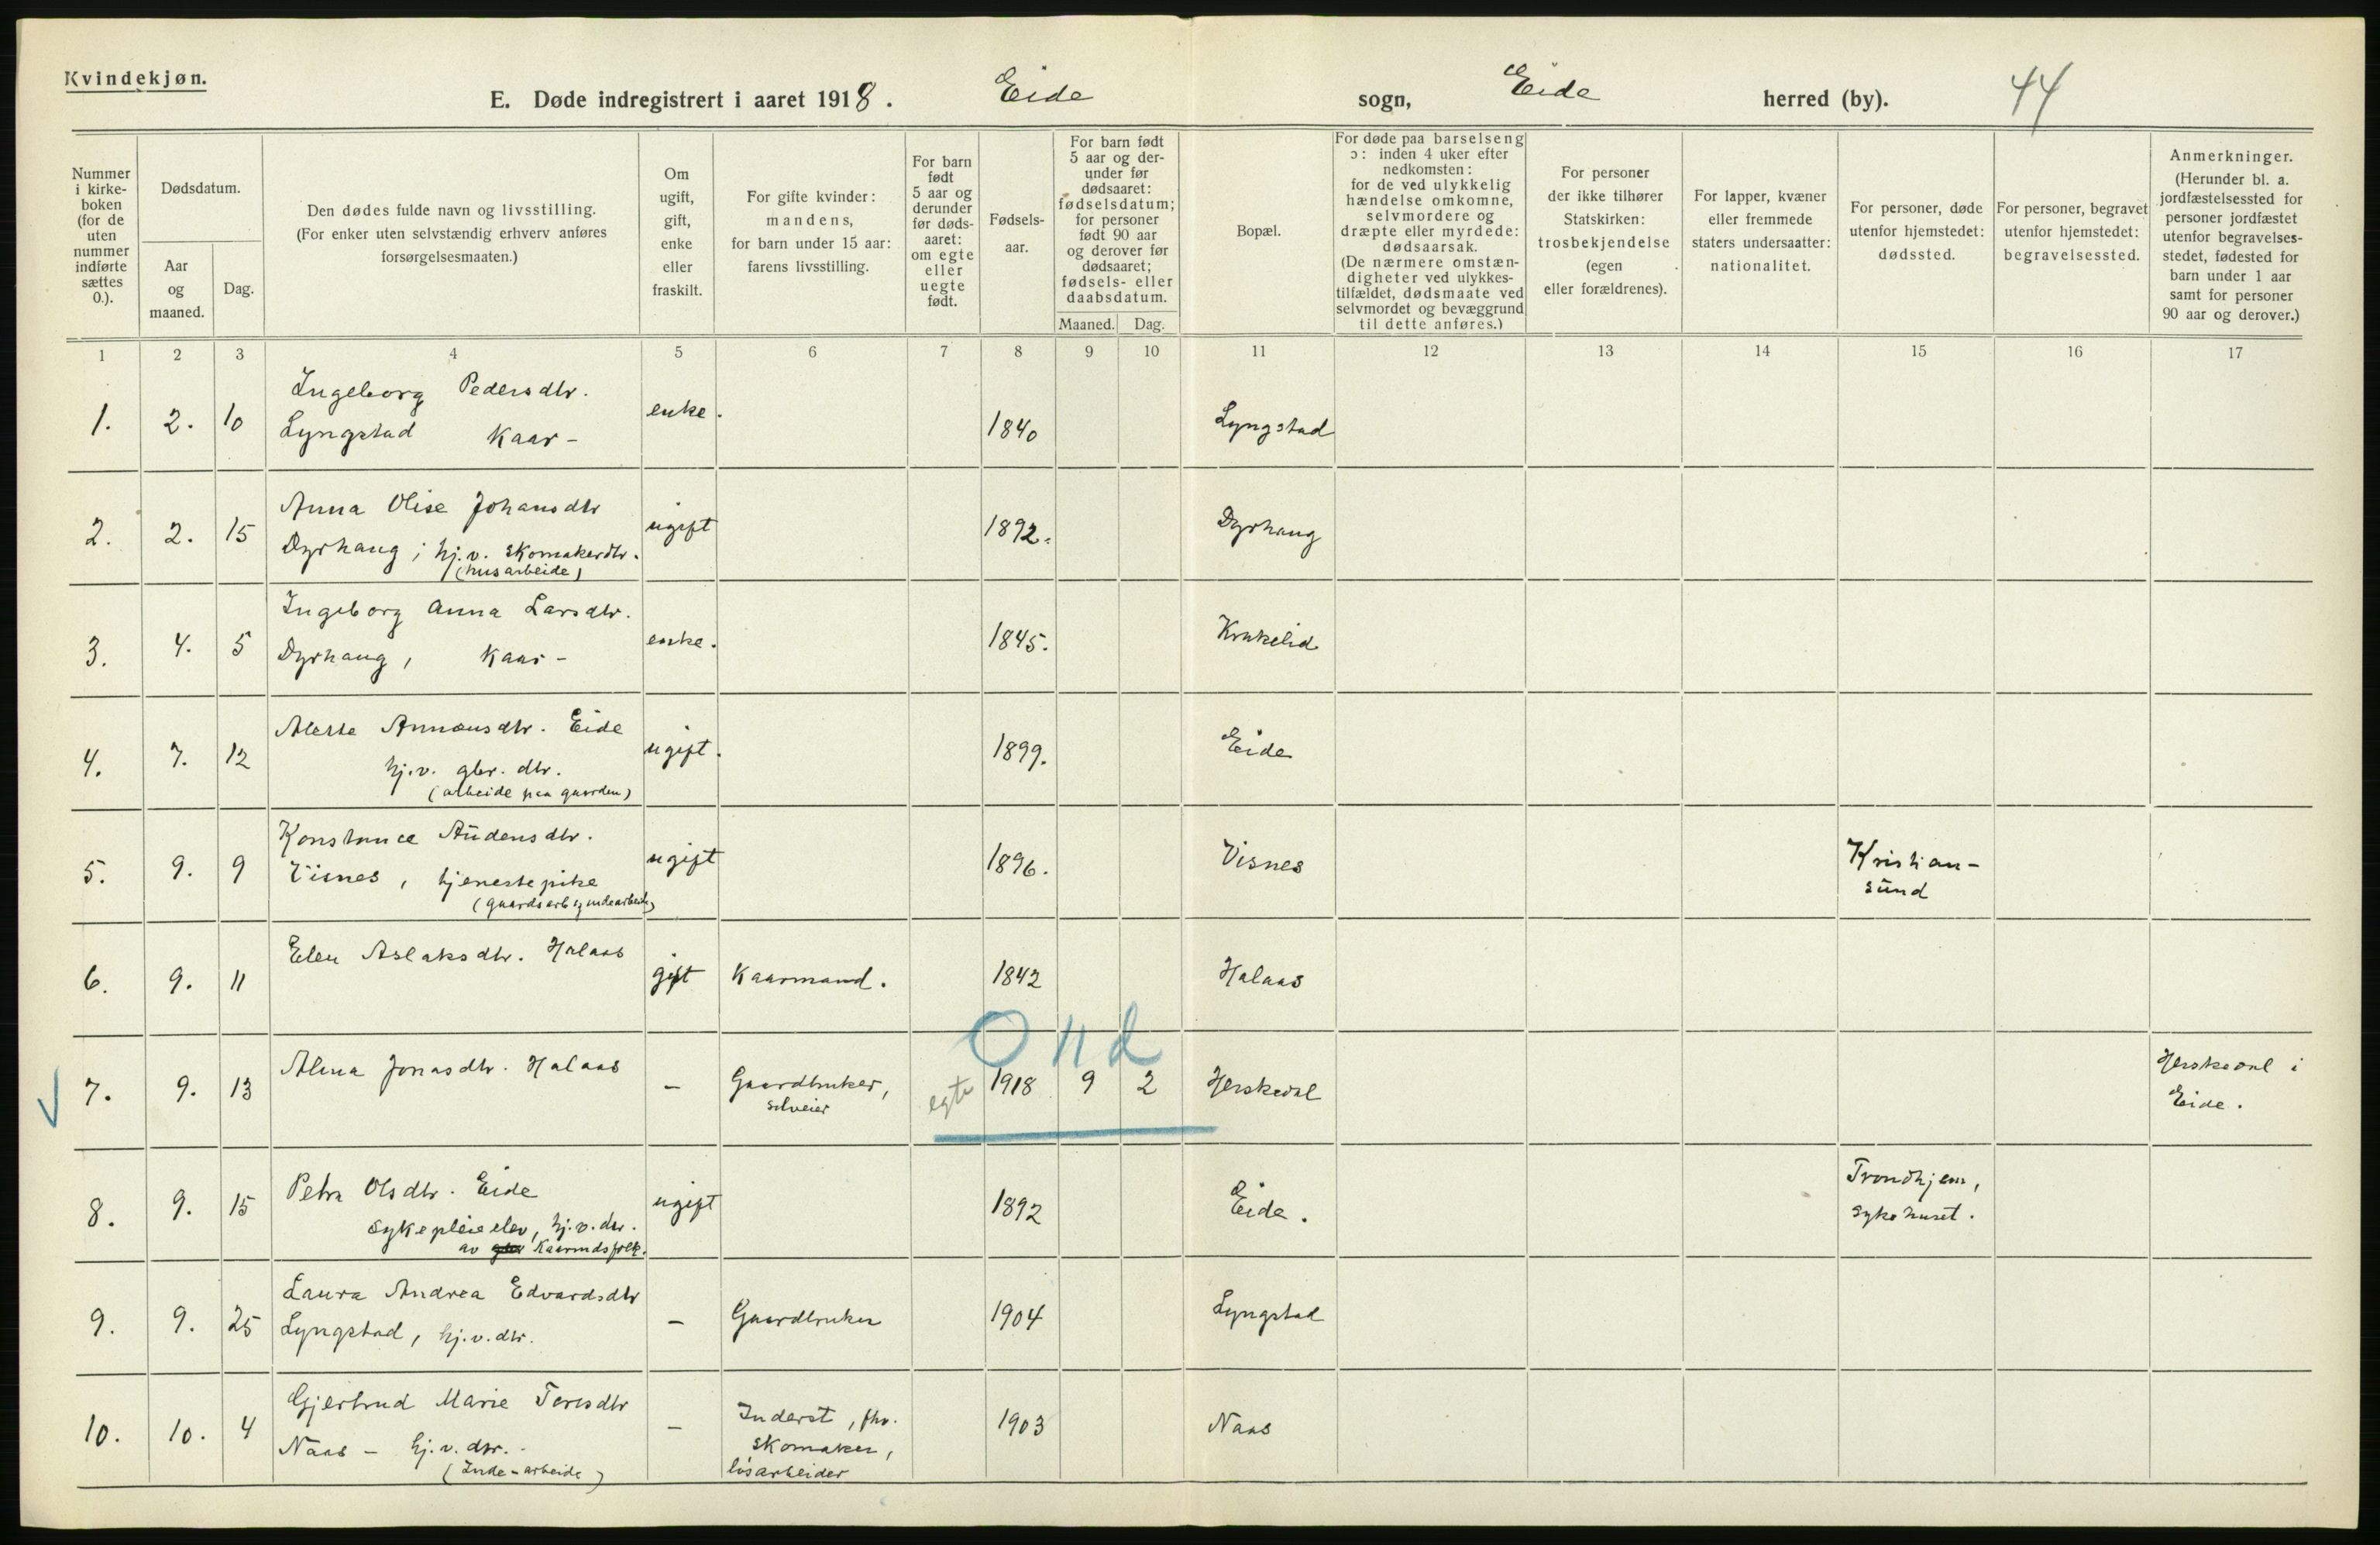 Kvindekjøn.
E. Døde indregistrert i aaret 1918. Eide sogn, Eide herred (by). 44
Nummer i kirke-boken (for de uten nummer indførte sættes 0.).
Dødsdatum.
Aar og maaned.
Dag.
Den dødes fulde navn og livsstilling.
(For enker uten selvstændig erhverv anføres
forsørgelsesmaaten.)
Om ugift, gift, enke eller fraskilt.
For gifte kvinder:
mandens,
for barn under 15 aar:
farens livsstilling.
For barn født 5 aar og derunder før døds-aaret: om egte eller uegte født.
Fødsels-aar.
For barn født 5 aar og der-under før dødsaaret: fødselsdatum; for personer født 90 aar og derover før dødsaaret; fødsels- eller daabsdatum.
Maaned. Dag.
Bopæl.
For døde paa barselseng
ɔ: inden 4 uker efter
nedkomsten:
for de ved ulykkelig
hændelse omkomne,
selvmordere og
dræpte eller myrdede:
dødsaarsak.
(De nærmere omstæn-
digheter ved ulykkes-
tilfældet, dødsmaate ved
selvmordet og bevæggrund
til dette anføres.)
For personer
der ikke tilhører
Statskirken:
trosbekjendelse
(egen
eller forældrenes).
For lapper, kvæner
eller fremmede
staters undersaatter:
nationalitet.
For personer, døde
utenfor hjemstedet:
dødssted.
For personer, begravet
utenfor hjemstedet:
begravelsessted.
Anmerkninger.
(Herunder bl. a.
jordfæstelsessted for
personer jordfæstet
utenfor begravelses-
stedet, fødested for
barn under 1 aar
samt for personer
90 aar og derover.)
1 2 3 4 5 6 7 8 9 10 11 12 13 14 15 16 17
Ingeborg Pedersdtr.
1. 2. 10 Lyngstad Kaar- enke. 1840 Lyngstad
Anna Olise Johansdtr
2. 2. 15 Dyrhaug; hj.v. skomakerdtr. ugift 1892. Dyrhaug
(husarbeide)
Ingeborg Anna Larsdtr.
3. 4. 5 Dyrhaug, Kaar- enke. 1845. Krakelid
Annæusdtr. Eide
4. 7. 12 hj.v. gbr. dtr. ugift. 1899. Eide
(arbeide paa gaarden)
Konstance Audensdtr.
5. 9. 9 Visnes, tjenestepike ugift 1896. Visnes Kristian-
sund
Elen Aslaksdtr. Halaas
6. 9. 11 gift Kaarmand. 1842 Halaas
Ond
Alma Jonasdtr. Halaas
7. 9. 13 - Gaardbruker, egte 1918 9 2 Herskedal Herskedal i
selveier Eide.
Petra Olsdtr. Eide
8. 9. 15 sykepleieelev, hj.v.dtr. ugift 1892 Eide. Trondhjem,
av Kaarmdsfolk. sykehuset.
Laura Andrea Edvardsdtr
9. 9. 25 Lyngstad, hj.v.dtr. - Gaardbruker 1904 Lyngstad
Gjertrud Marie Toresdtr
10. 10. 4 Naas - hj.v.dtr. - Inderst, fhv. 1903 Naas
(Inde-arbeide) skomaker,
løsarbeider